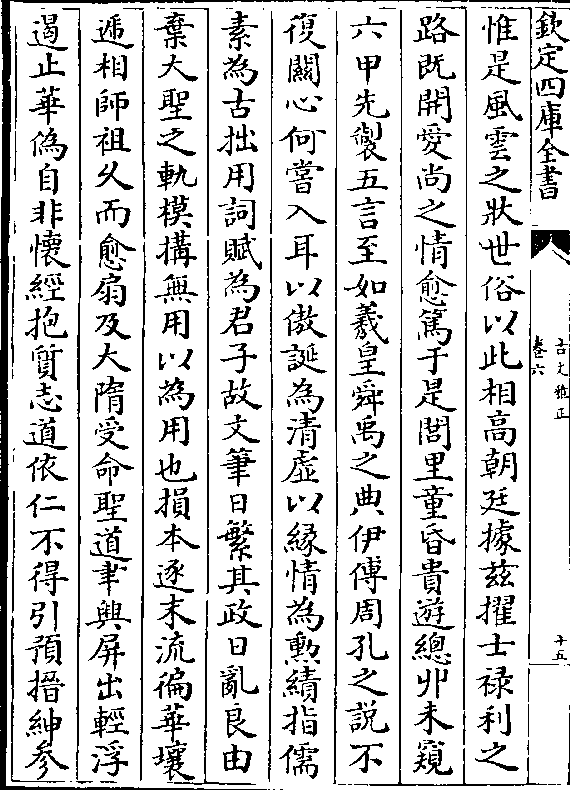 欽定四庫全書
古文雅正
卷六
十五
惟是風雲之狀世俗以此相高朝廷據茲擢士祿利之
路既開愛尚之情愈篤于是閭里童昏貴遊總丱未窺
六甲先製五言至如羲皇舜禹之典伊傅周孔之説不
復關心何嘗入耳以傲誕為清虛以緣情為勲績指儒
素為古拙用詞賦為君子故文筆日繁其政日亂良由
棄大聖之軌模搆無用以為用也損本逐末流徧華壤
遞相師祖乆而愈扇及大隋受命聖道聿興屏出輕浮
遏止華偽自非懷經抱質志道依仁不得引預搢紳參